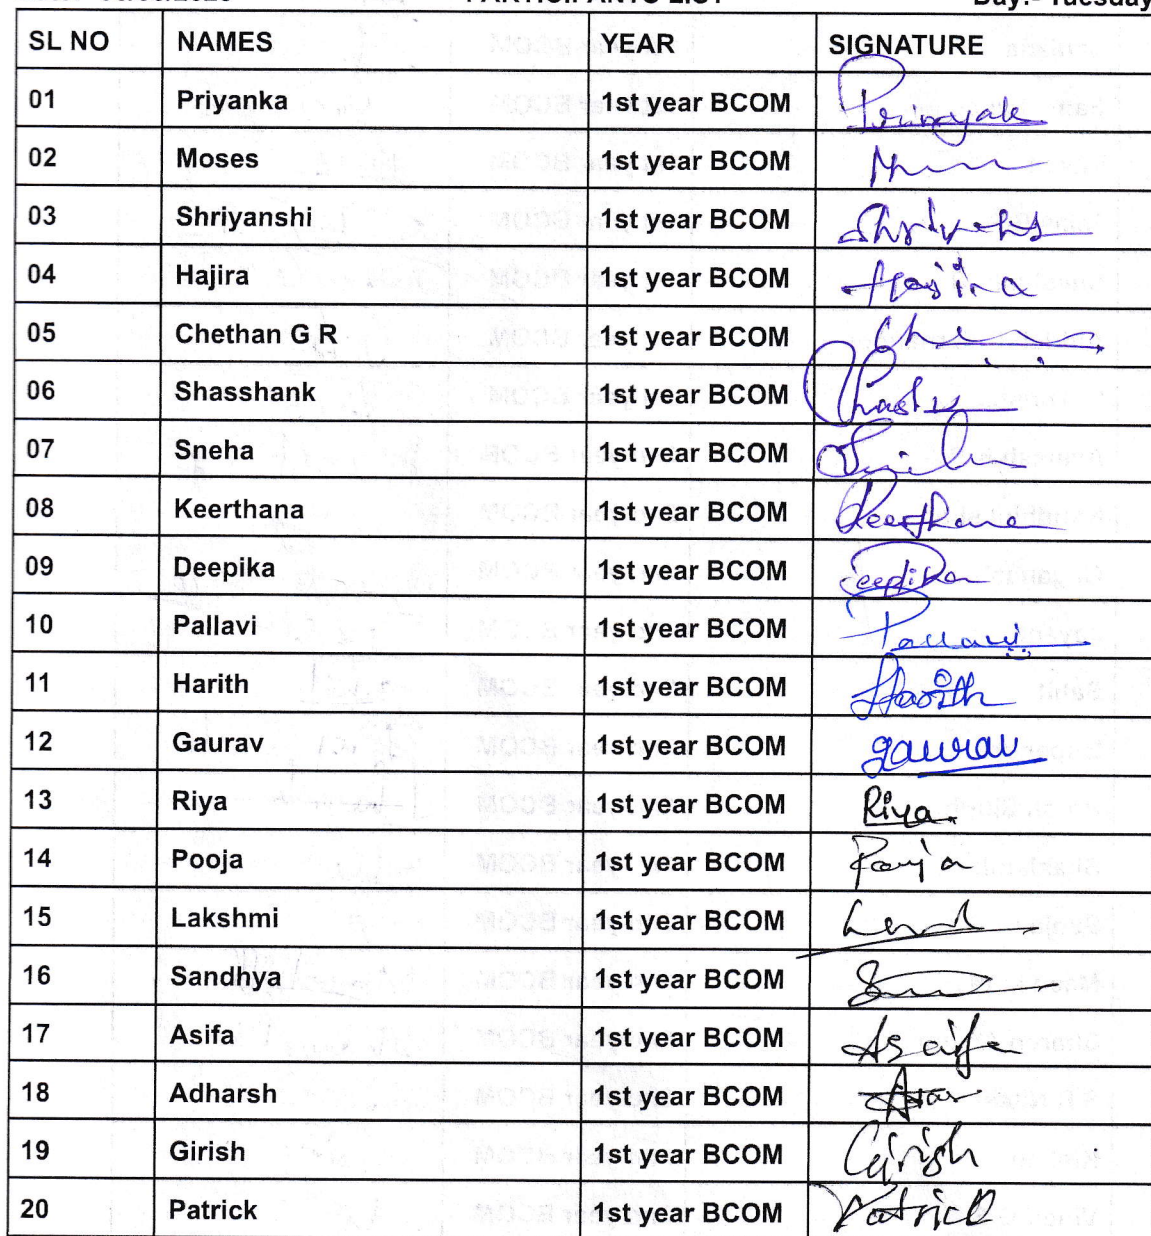 PARTICIPANTS LIST
SL NO NAMES YEAR SIGNATURE
01 Priyanka 1st year BCOM
02 Moses 1st year BCOM
03 Shriyanshi 1st year BCOM
04 Hajira 1st year BCOM Hajira
05 Chethan G R 1st year BCOM
06 Shasshank 1st year BCOM
07 Sneha 1st year BCOM
08 Keerthana 1st year BCOM Keerthana
09 Deepika 1st year BCOM Deepika
10 Pallavi 1st year BCOM Pallavi
11 Harith 1st year BCOM Harith
12 Gaurav 1st year BCOM gaurav
13 Riya 1st year BCOM Riya.
14 Pooja 1st year BCOM Pooja
15 Lakshmi 1st year BCOM
16 Sandhya 1st year BCOM
17 Asifa 1st year BCOM Asifa
18 Adharsh 1st year BCOM
19 Girish 1st year BCOM Girish
20 Patrick 1st year BCOM Patrick